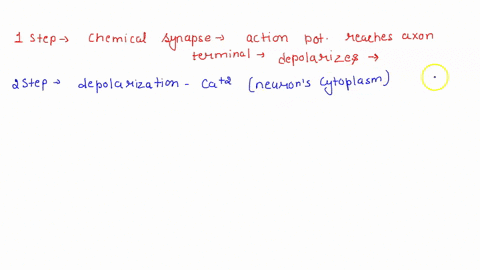 1 Step → Chemical synapse → action pot. reaches axon
terminal → depolarizes →
2 Step → depolarization - Ca+2 (neuron's cytoplasm)